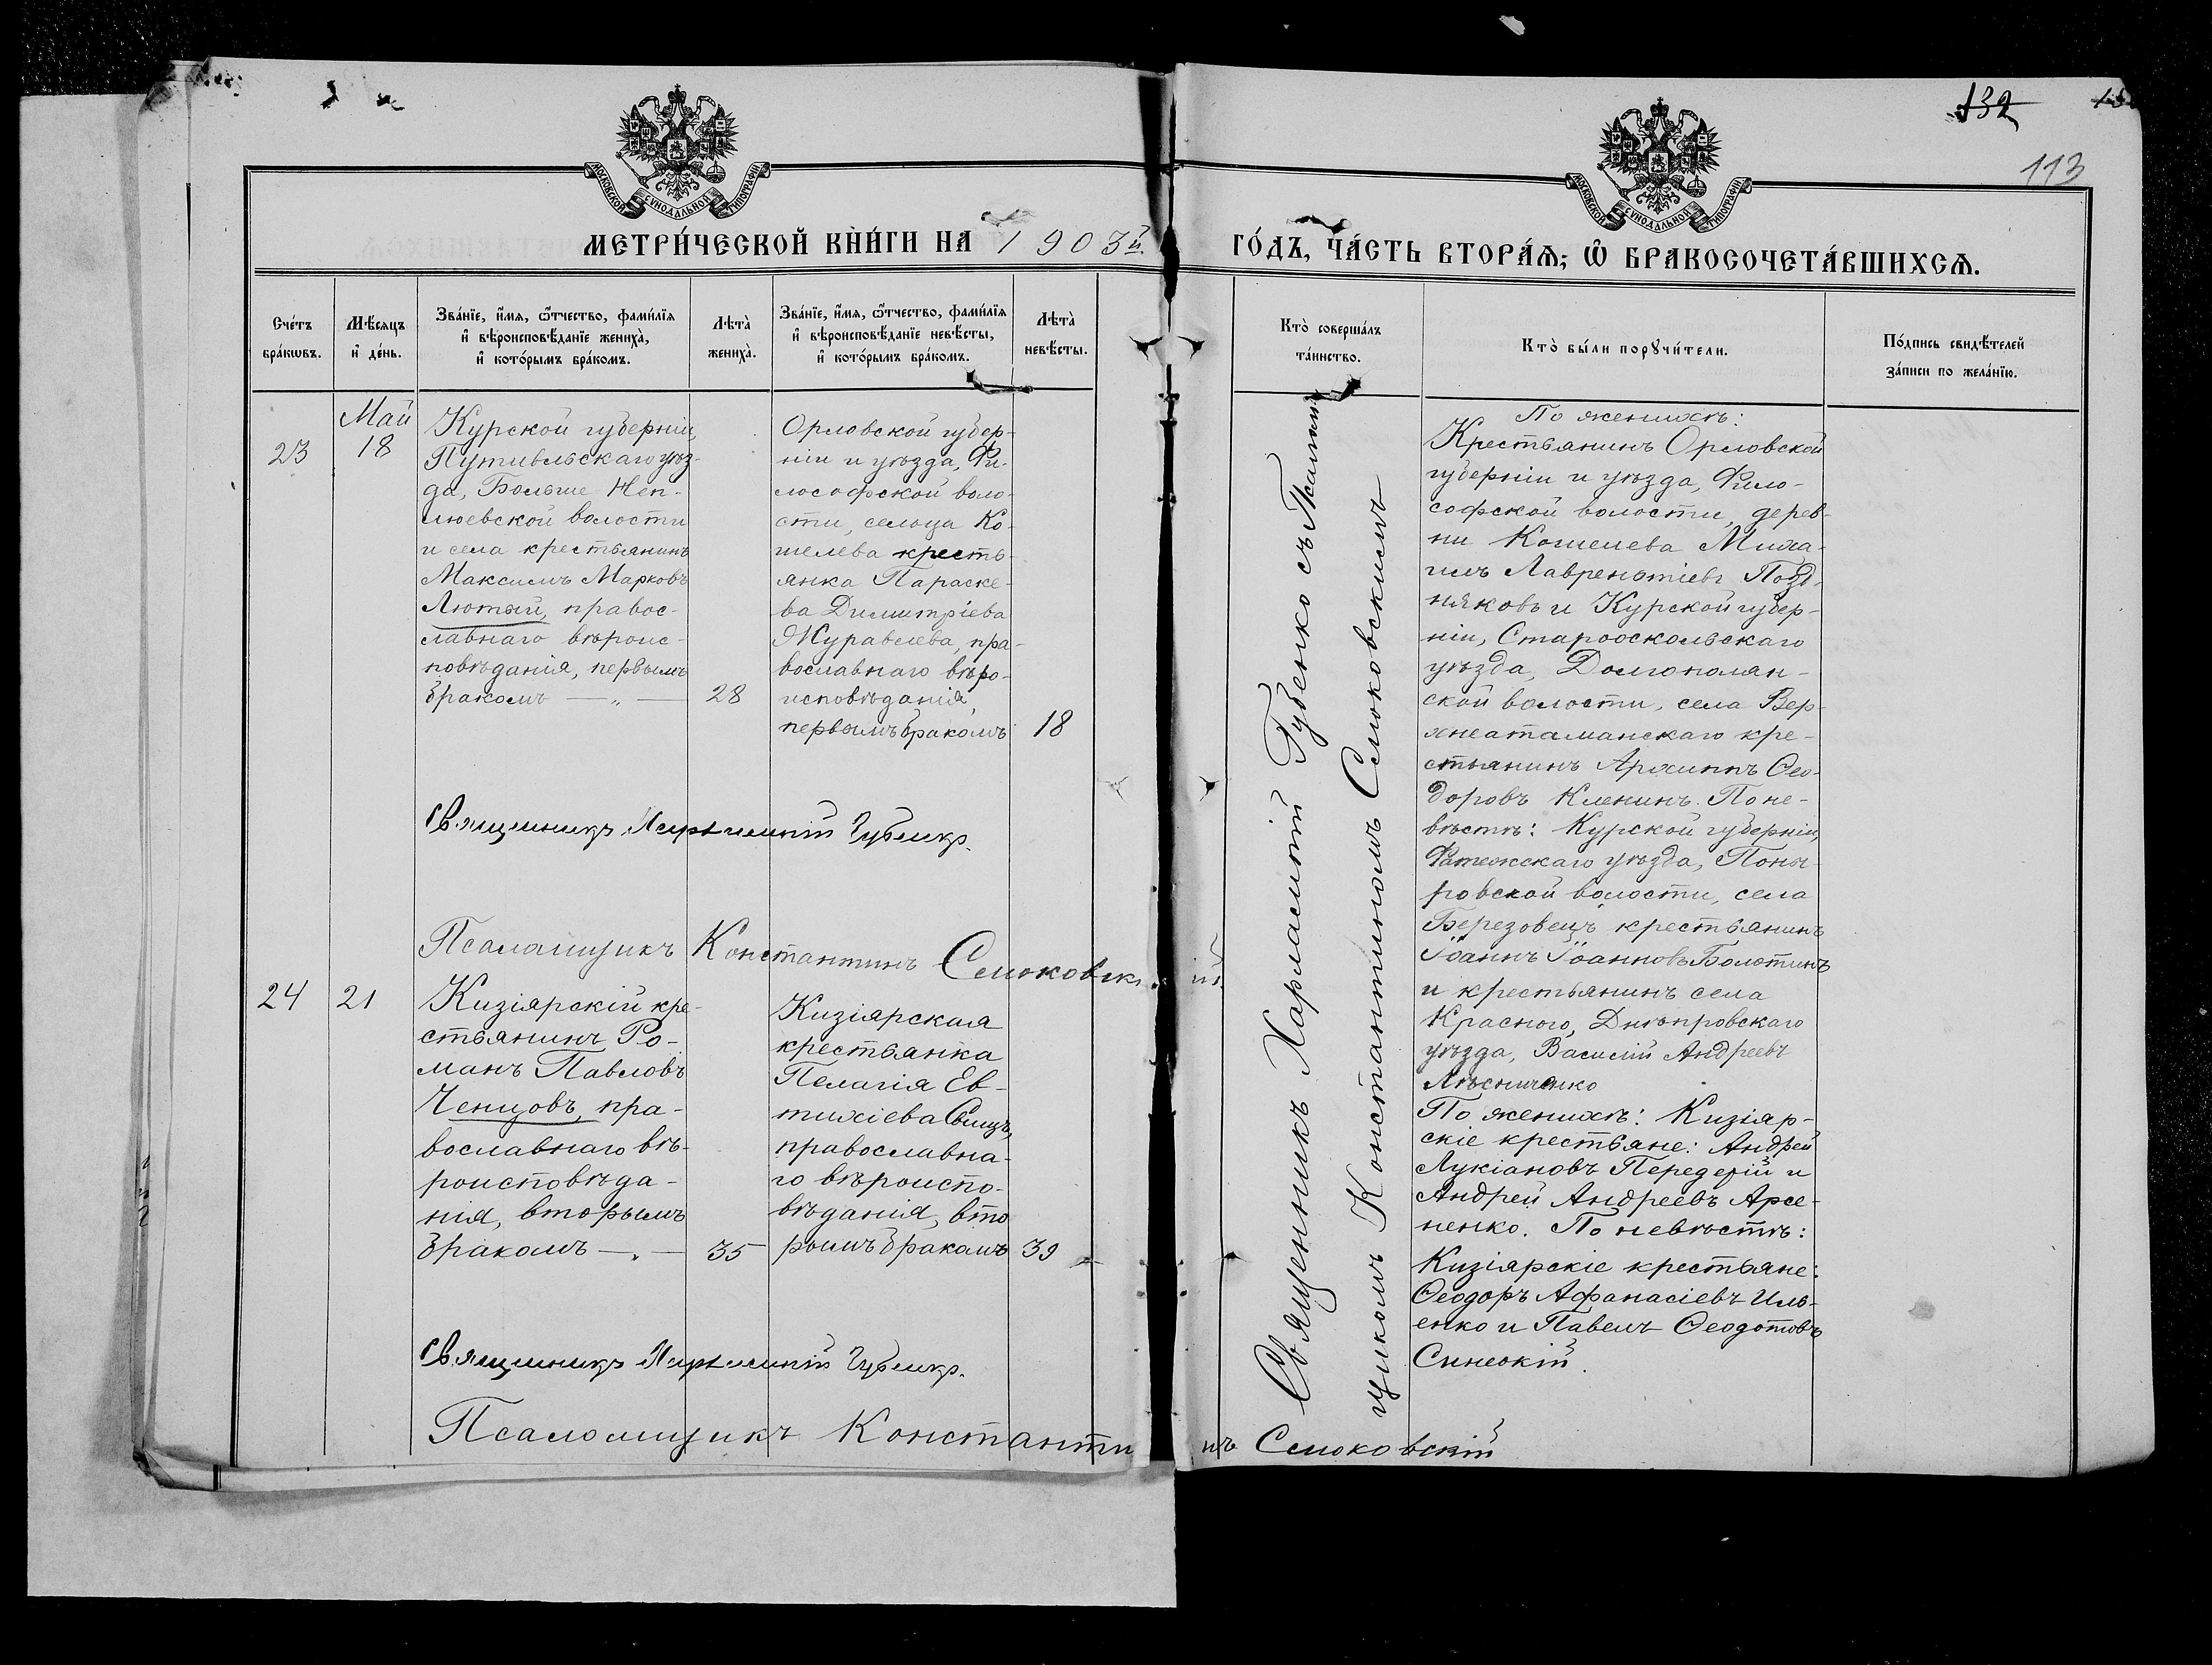 132
113
МОСКОВСКОЙ СѴНОДАЛЬНОЙ ТИПОГРАФІИ
МОСКОВСКОЙ СѴНОДАЛЬНОЙ ТИПОГРАФІИ
МЕТРИ́ЧЕСКОЙ КНИ́ГИ НА 1903й.
ГО́ДЪ, ЧА́СТЬ ВТОРА́Ѧ; Ѽ БРАКОСОЧЕТА́ВШИХСѦ.
Сче́тъ
бра́кѡвъ.
Мѣ́сяцъ
и҆ де́нь.
Зва́нїе, и҆́мя, ѻ҆́тчество, фами́лїя
и҆ вѣроисповѣ́данїе жениха̀,
и҆ кото́рымъ бра́комъ.
Лѣта̀
жениха̀.
Зва́нїе, и҆́мя, ѻ҆́тчество, фами́лїя
и҆ вѣроисповѣ́данїе невѣ́сты,
и҆ кото́рымъ бра́комъ.
Лѣта̀
невѣ́сты.
Кто̀ соверша́лъ
та́инство.
Кто̀ бы́ли порꙋчи́тели.
По́дпись свидѣ́телей
за́писи по жела́нїю.
23
Май
18
Курской губерніи,
Путивльскаго уѣз-
да, Больше Неп-
люевской волости
и села крестьянинъ
Максимъ Марковъ
Лютый, правос-
лавнаго вѣроис-
повѣданія, первымъ
бракомъ — „ —
28
Орловской губер-
ніи и уѣзда, Фи-
лософской воло-
сти, сельца Ко-
шелева кресть-
янка Параске-
ва Димитріева
Журавлева, пра-
вославнаго вѣро-
исповѣданія,
первымъ бракомъ
18
Священникъ Харлампій Губенко съ Псалом-
щикомъ Константиномъ Смоковскимъ
По женихѣ:
Крестьянинъ Орловской
губерніи и уѣзда, Фило-
софской волости, дерев-
ни Кошелева Миха-
илъ Лаврентіевъ Позд-
няковъ и Курской губер-
ніи, Старооскольскаго
уѣзда, Долгополян-
ской волости, села Вер-
хнеатаманскаго кре-
стьянинъ Архиппъ Ѳео-
доровъ Кленинъ. По не-
вѣстѣ: Курской губерніи,
Фатежскаго уѣзда, Поны-
ровской волости, села
Березовецъ крестьянинъ
Іоаннъ Іоанновъ Болотинъ
и крестьянинъ села
Красного, Днѣпровскаго
уѣзда, Василій Андреевъ
Лѣсниченко
Священникъ Харлампій Губенко.
Псаломщикъ Константинъ Смоковскій.
24
21
Кизіярскій кре-
стьянинъ Ро-
манъ Павловъ
Ченцовъ, пра-
вославнаго вѣ-
роисповѣда-
нія, вторымъ
бракомъ — „ —
35
Кизіярская
крестьянка
Пелагія Ев-
тихіева
православна-
го вѣроиспо-
вѣданія, вто
рымъ бракомъ
39
По женихѣ: Кизіяр-
скіе крестьяне: Андрей
Лукіановъ Передерій и
Андрей Андреевъ Арсе-
ненко. По невѣстѣ:
Кизіярскіе крестьяне:
Ѳеодоръ Афанасіевъ Иль-
енко и Павелъ Ѳеодотовъ
Синеокій.
Священникъ Харлампій Губенко.
Псаломщикъ Константинъ Смоковскій